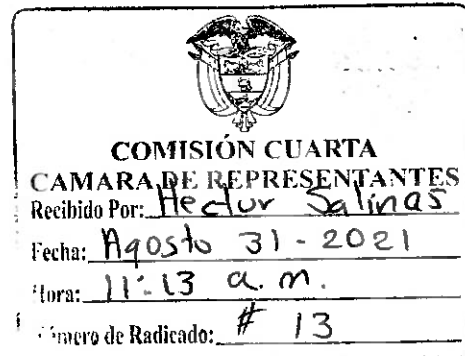 COMISIÓN CUARTA
CAMARA DE REPRESENTANTES
Recibido Por: Hectur Salinas
Fecha: Agosto 31 - 2021
Hora: 11:13 a.m.
Número de Radicado: # 13